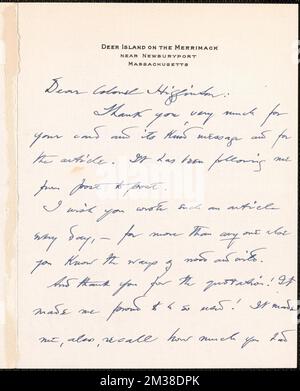 DEER ISLAND ON THE MERRIMACK
NEAR NEWBURYPORT
MASSACHUSETTS
Dear Colonel Higginson:
Thank you very much for
your card and its kind message and for
the article. It has been following me
from post to post.
I wish you wrote such an article
every day, — for more than any one else
you know the ways of wood and
And thank you for the quotation! It
made me proud to be so used! It made
me, also, recall how much you had
alamy
Image ID: 2M38DPK
www.alamy.com